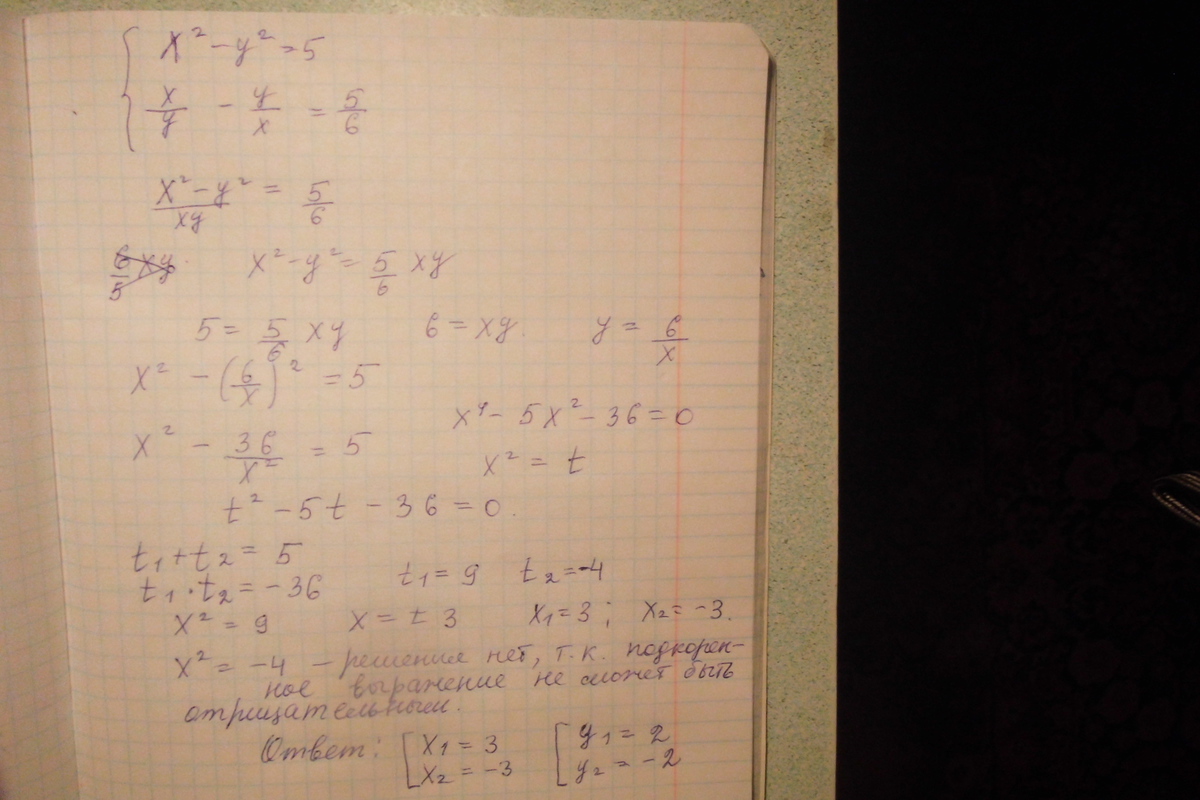 { x² - y² = 5
x/y - y/x = 5/6
(x² - y²)/xy = 5/6
6/5 xy x² - y² = 5/6 xy
5 = 5/6 xy 6 = xy. y = 6/x
x² - (6/x)² = 5
x² - 36/x² = 5 x⁴ - 5x² - 36 = 0
x² = t
t² - 5t - 36 = 0.
t₁ + t₂ = 5
t₁ · t₂ = -36 t₁ = 9 t₂ = -4
x² = 9 x = ± 3 x₁ = 3 ; x₂ = -3.
x² = -4 – решения нет, т.к. подкорен-
ное выражение не может быть
отрицательным.
Ответ: [ x₁ = 3 [ y₁ = 2
x₂ = -3 y₂ = -2